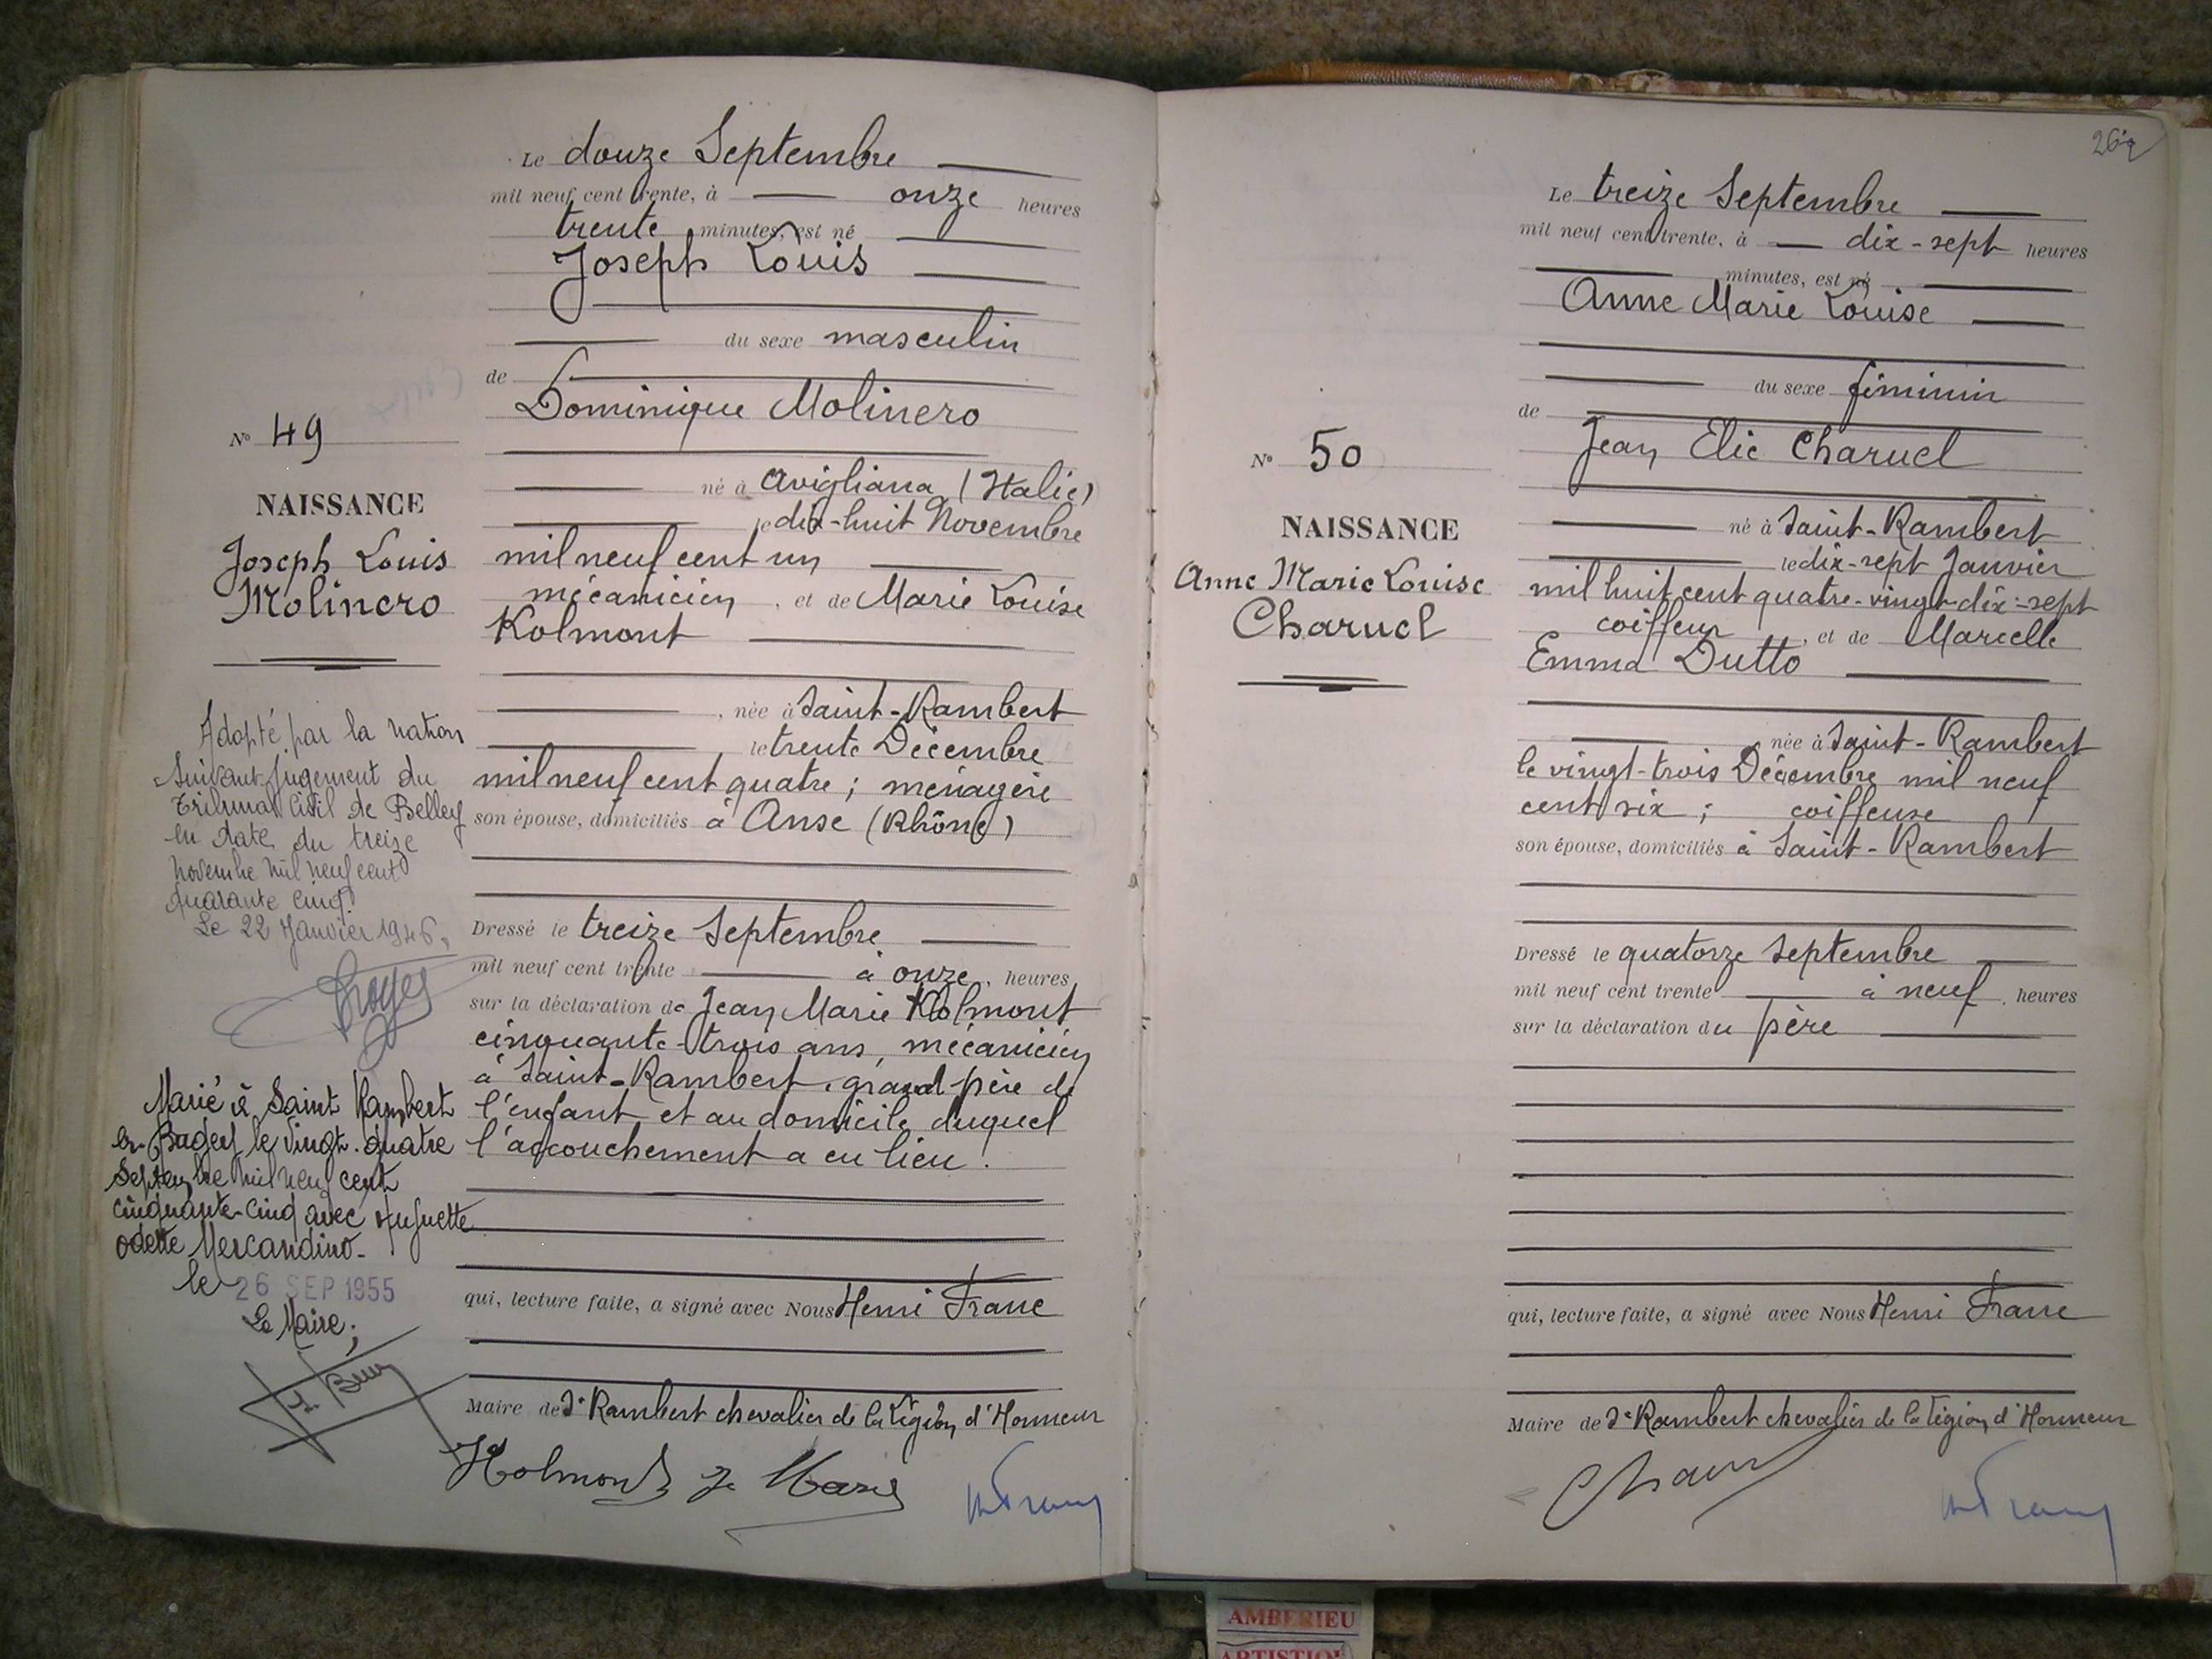 Le douze Septembre
mil neuf cent trente, à onze heures
trente minutes, est né
Joseph Louis
du sexe masculin
de
Dominique Molinero
né à Avigliana (Italie)
le dix-huit Novembre
mil neuf cent un
mécanicien, et de Marie Louise
Kolmont
née à Saint-Rambert
le trente Décembre
mil neuf cent quatre ; ménagère
son épouse, domiciliés à Anse (Rhône)
Dressé le treize Septembre
mil neuf cent trente à onze heures
sur la déclaration de Jean Marie Kolmont
cinquante-trois ans, mécanicien
à Saint-Rambert, grand père de
l'enfant et au domicile duquel
l'accouchement a eu lieu.
qui, lecture faite, a signé avec Nous Henri Franc
Maire de St Rambert chevalier de la Légion d'Honneur
Kolmont J. Marie
N° 49
NAISSANCE
Joseph Louis
Molinero
Adopté par la nation
Suivant jugement du
Tribunal Civil de Belley
en date du treize
novembre mil neuf cent
quarante cinq.
Le 22 Janvier 1946.
Marié à Saint Rambert
en Bugey le vingt-quatre
Septembre mil neuf cent
cinquante-cinq avec Huguette
Odette Mercandino-
le 26 SEP 1955
Le Maire,
Le treize Septembre
mil neuf cent trente, à dix-sept heures
minutes, est né
Anne Marie Louise
du sexe féminin
de
Jean Elie Charuel
né à Saint-Rambert
le dix-sept Janvier
mil huit cent quatre-vingt-dix-sept
coiffeur, et de Marcelle
Emma Dutto
née à Saint-Rambert
le vingt-trois Décembre mil neuf
cent six ; coiffeuse
son épouse, domiciliés à Saint-Rambert
Dressé le quatorze Septembre
mil neuf cent trente à neuf heures
sur la déclaration du père
qui, lecture faite, a signé avec Nous Henri Franc
Maire de St Rambert chevalier de la Légion d'Honneur
N° 50
NAISSANCE
Anne Marie Louise
Charuel
AMBERIEU